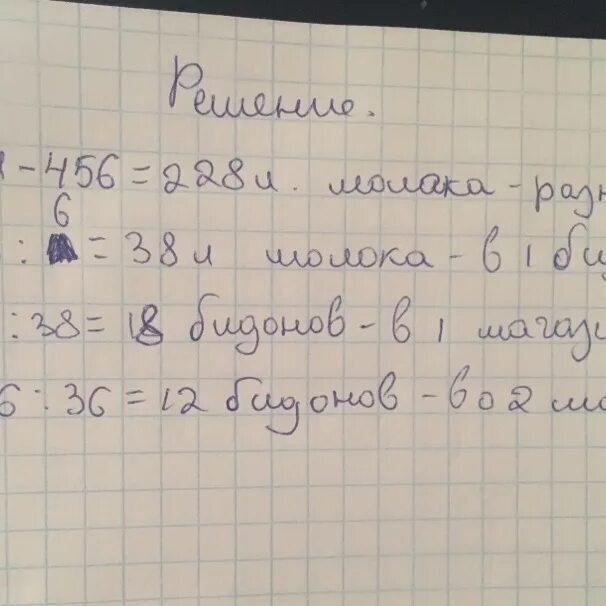 Решение.
- 456 = 228 л. молака - разн
6
: = 38 л молока - в 1 би
: 38 = 18 бидонов - в 1 магази
6 : 36 = 12 бидонов - во 2 ма